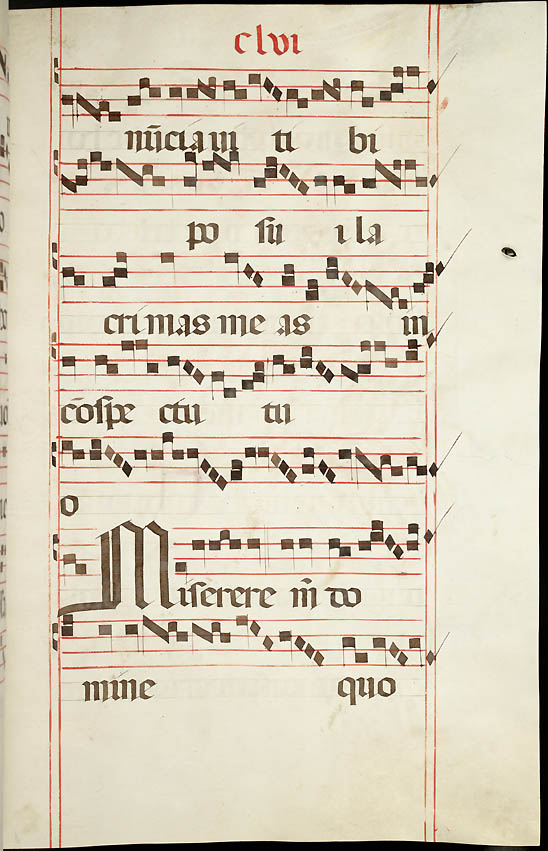 clvi
nu̅ciaui ti bi
po su i la
crimas me as in
co̅spe ctu tu
o
Miserere m̅ do
mine quo